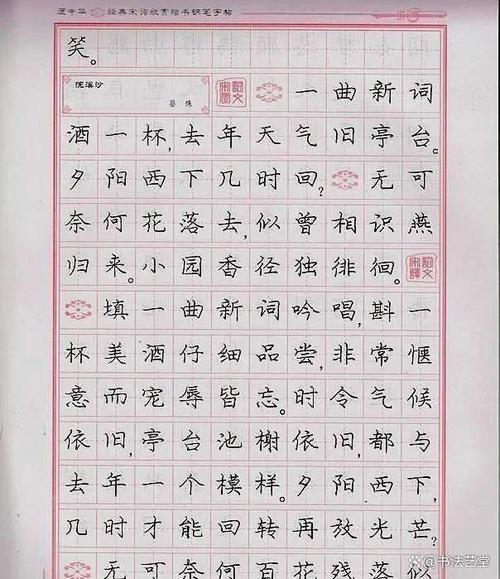 庞中华 经典宋词欣赏楷书钢笔字帖
笑。
浣溪沙
晏 殊
词文 一曲新词
酒一杯,去年天气旧亭台。
夕阳西下几时回? 无可
奈何花落去,似曾相识燕
归来。小园香径独徘徊。
填一曲新词吟唱,斟一
杯美酒仔细品尝,非常惬
意而宠辱皆忘。时令气候
依旧,亭台池榭依旧,都与
去年一个模样。夕阳西下,
几时才能回转再放光芒?
无可奈何百花残落似
@书法艺堂